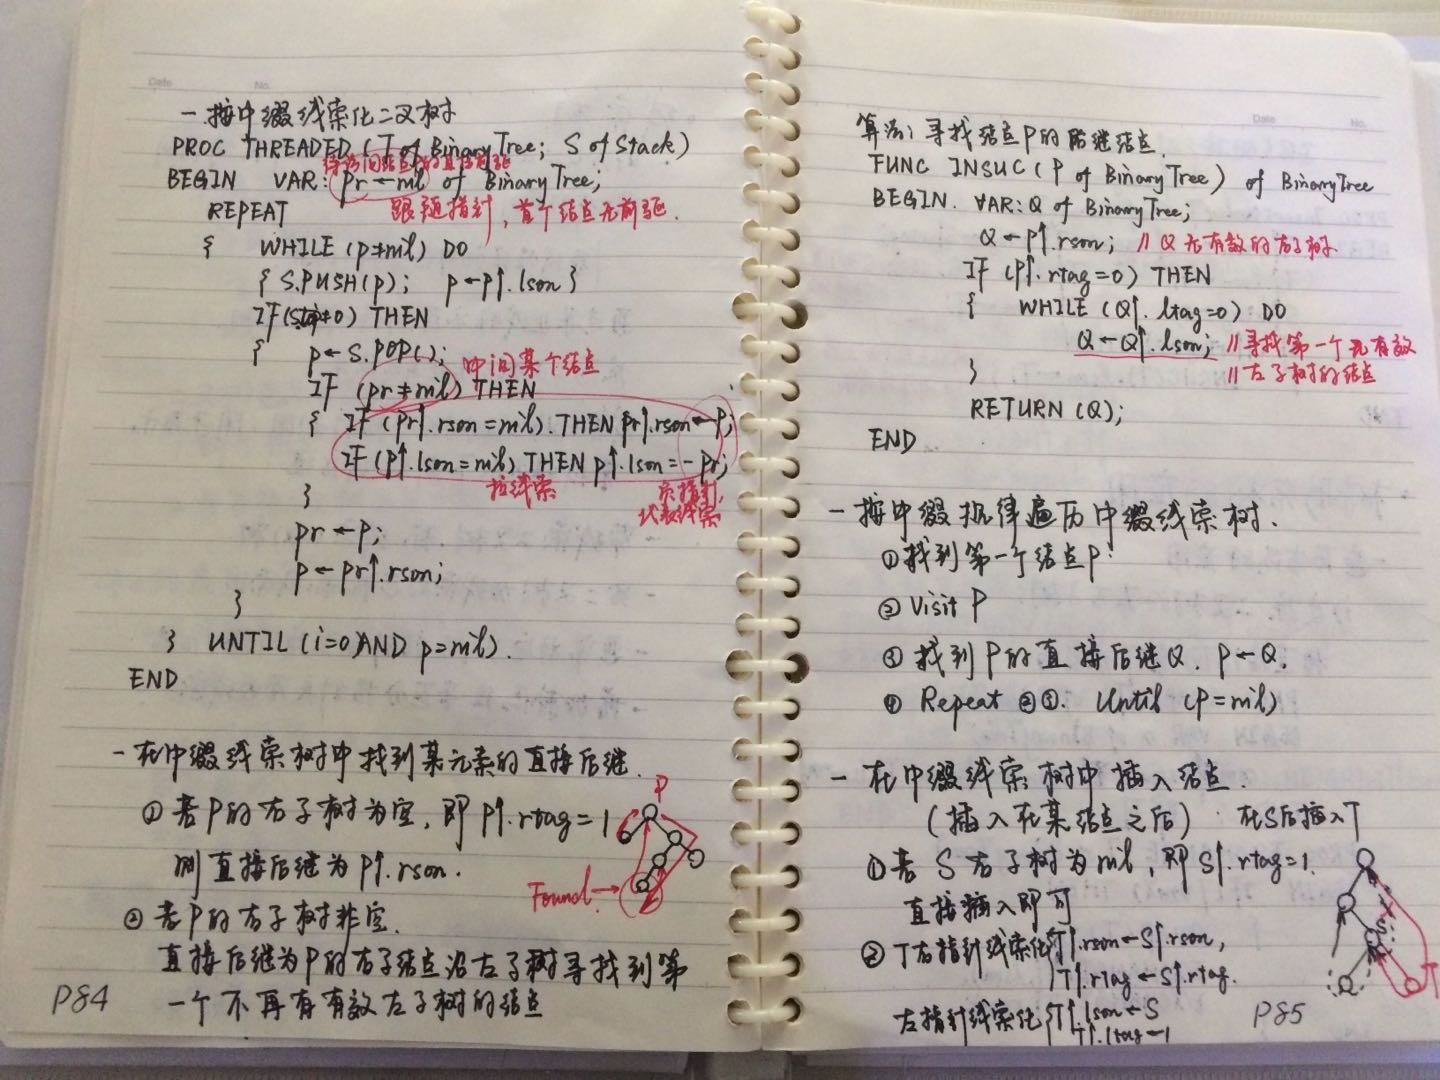 Date No.
一按中缀线索化二叉树
PROC THREADED (T of BinaryTree; S of Stack)
BEGIN VAR: pr←nil of BinaryTree;
跟随指针,首个结点无前驱.
REPEAT
{ WHILE (p≠nil) DO
{ S.PUSH(p); p←p↑.lson }
IF (≠0) THEN
{ p←S.POP();
中间某个结点
IF (pr≠nil) THEN
{ IF (pr↑.rson=nil). THEN pr↑.rson←p;
IF (p↑.lson=nil) THEN p↑.lson=-pr;
拉线索
负指针,
代表线索
}
pr←p;
p←pr↑.rson;
}
} UNTIL (i=0)AND p=nil).
END
一在中缀线索树中找到某元素的直接后继.
①若P的右子树为空,即P↑.rtag=1
则直接后继为P↑.rson.
P
Found.
②若P的右子树非空.
直接后继为P的右子结点沿左子树寻找到第
一个不再有有效左子树的结点
P84
Date No.
算法:寻找结点P的后继结点.
FUNC INSUC(P of BinaryTree) of BinaryTree
BEGIN. VAR:Q of BinaryTree;
Q←P↑.rson; //Q无有效的右子树
IF (P↑.rtag=0) THEN
{ WHILE (Q↑.ltag=0) DO
Q←Q↑.lson; //寻找第一个无有效
} //左子树的结点
RETURN(Q);
END
一按中缀规律遍历中缀线索树.
①找到第一个结点P
②Visit P
③找到P的直接后继Q. P←Q.
④Repeat ②③. Until (P=nil)
一在中缀线索树中插入结点.
(插入在某结点之后) 在S后插入T
①若S右子树为nil,即S↑.rtag=1.
直接插入即可
②T右指针线索化{T↑.rson←S↑.rson,
T↑.rtag←S↑.rtag.
左指针线索化{T↑.lson←S
T↑.ltag←1
S
T
P85